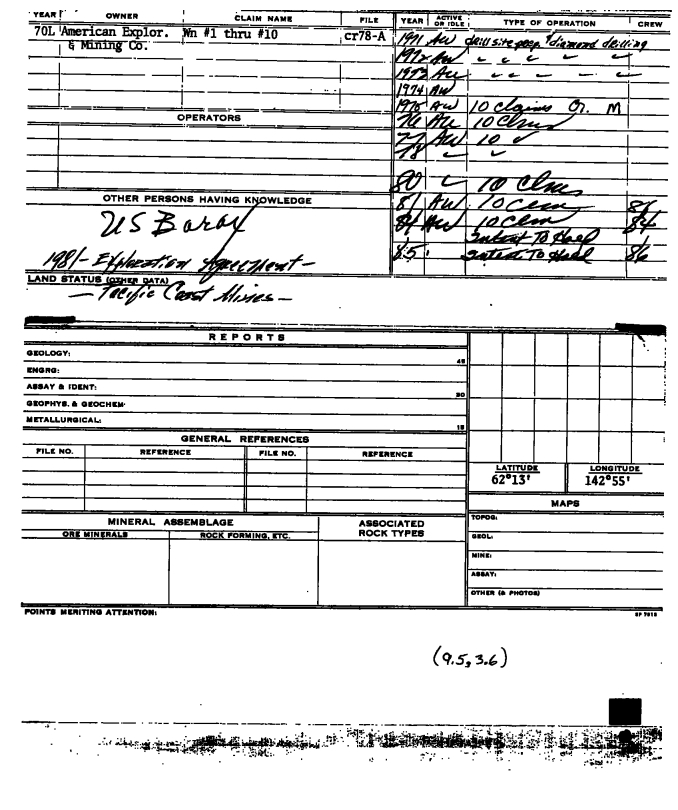 YEAR OWNER CLAIM NAME FILE YEAR ACTIVE OR IDLE TYPE OF OPERATION CREW
70L American Explor. Wn #1 thru #10 cr78-A 1971 AW drill site prep. & diamond drilling
& Mining Co. 1972 AW ✓ ✓ ✓ ✓ ✓
1973 AW ✓ ✓ – ✓ – ✓
1974 AW
1975 AW 10 claims Or. M
OPERATORS 76 AW 10 Clms
77 AW 10 ✓
78 ✓ ✓
80 ✓ 10 Clms
OTHER PERSONS HAVING KNOWLEDGE 81 AW 10 Clm 84
US Borax 84 AW 10 Clm 84
Intent To Hold
1981 - Exploration Agreement - 85 Intent To Hold 86
LAND STATUS (OTHER DATA)
- Pacific Coast Mines -
REPORTS
GEOLOGY: 45
ENGRG:
ASSAY & IDENT: 30
GEOPHYS. & GEOCHEM:
METALLURGICAL: 15
GENERAL REFERENCES
FILE NO. REFERENCE FILE NO. REFERENCE
LATITUDE LONGITUDE
62°13' 142°55'
MAPS
MINERAL ASSEMBLAGE ASSOCIATED ROCK TYPES TOPOG:
ORE MINERALS ROCK FORMING, ETC. GEOL:
MINE:
ASSAY:
OTHER (& PHOTOS)
POINTS MERITING ATTENTION:
(9.5, 3.6)